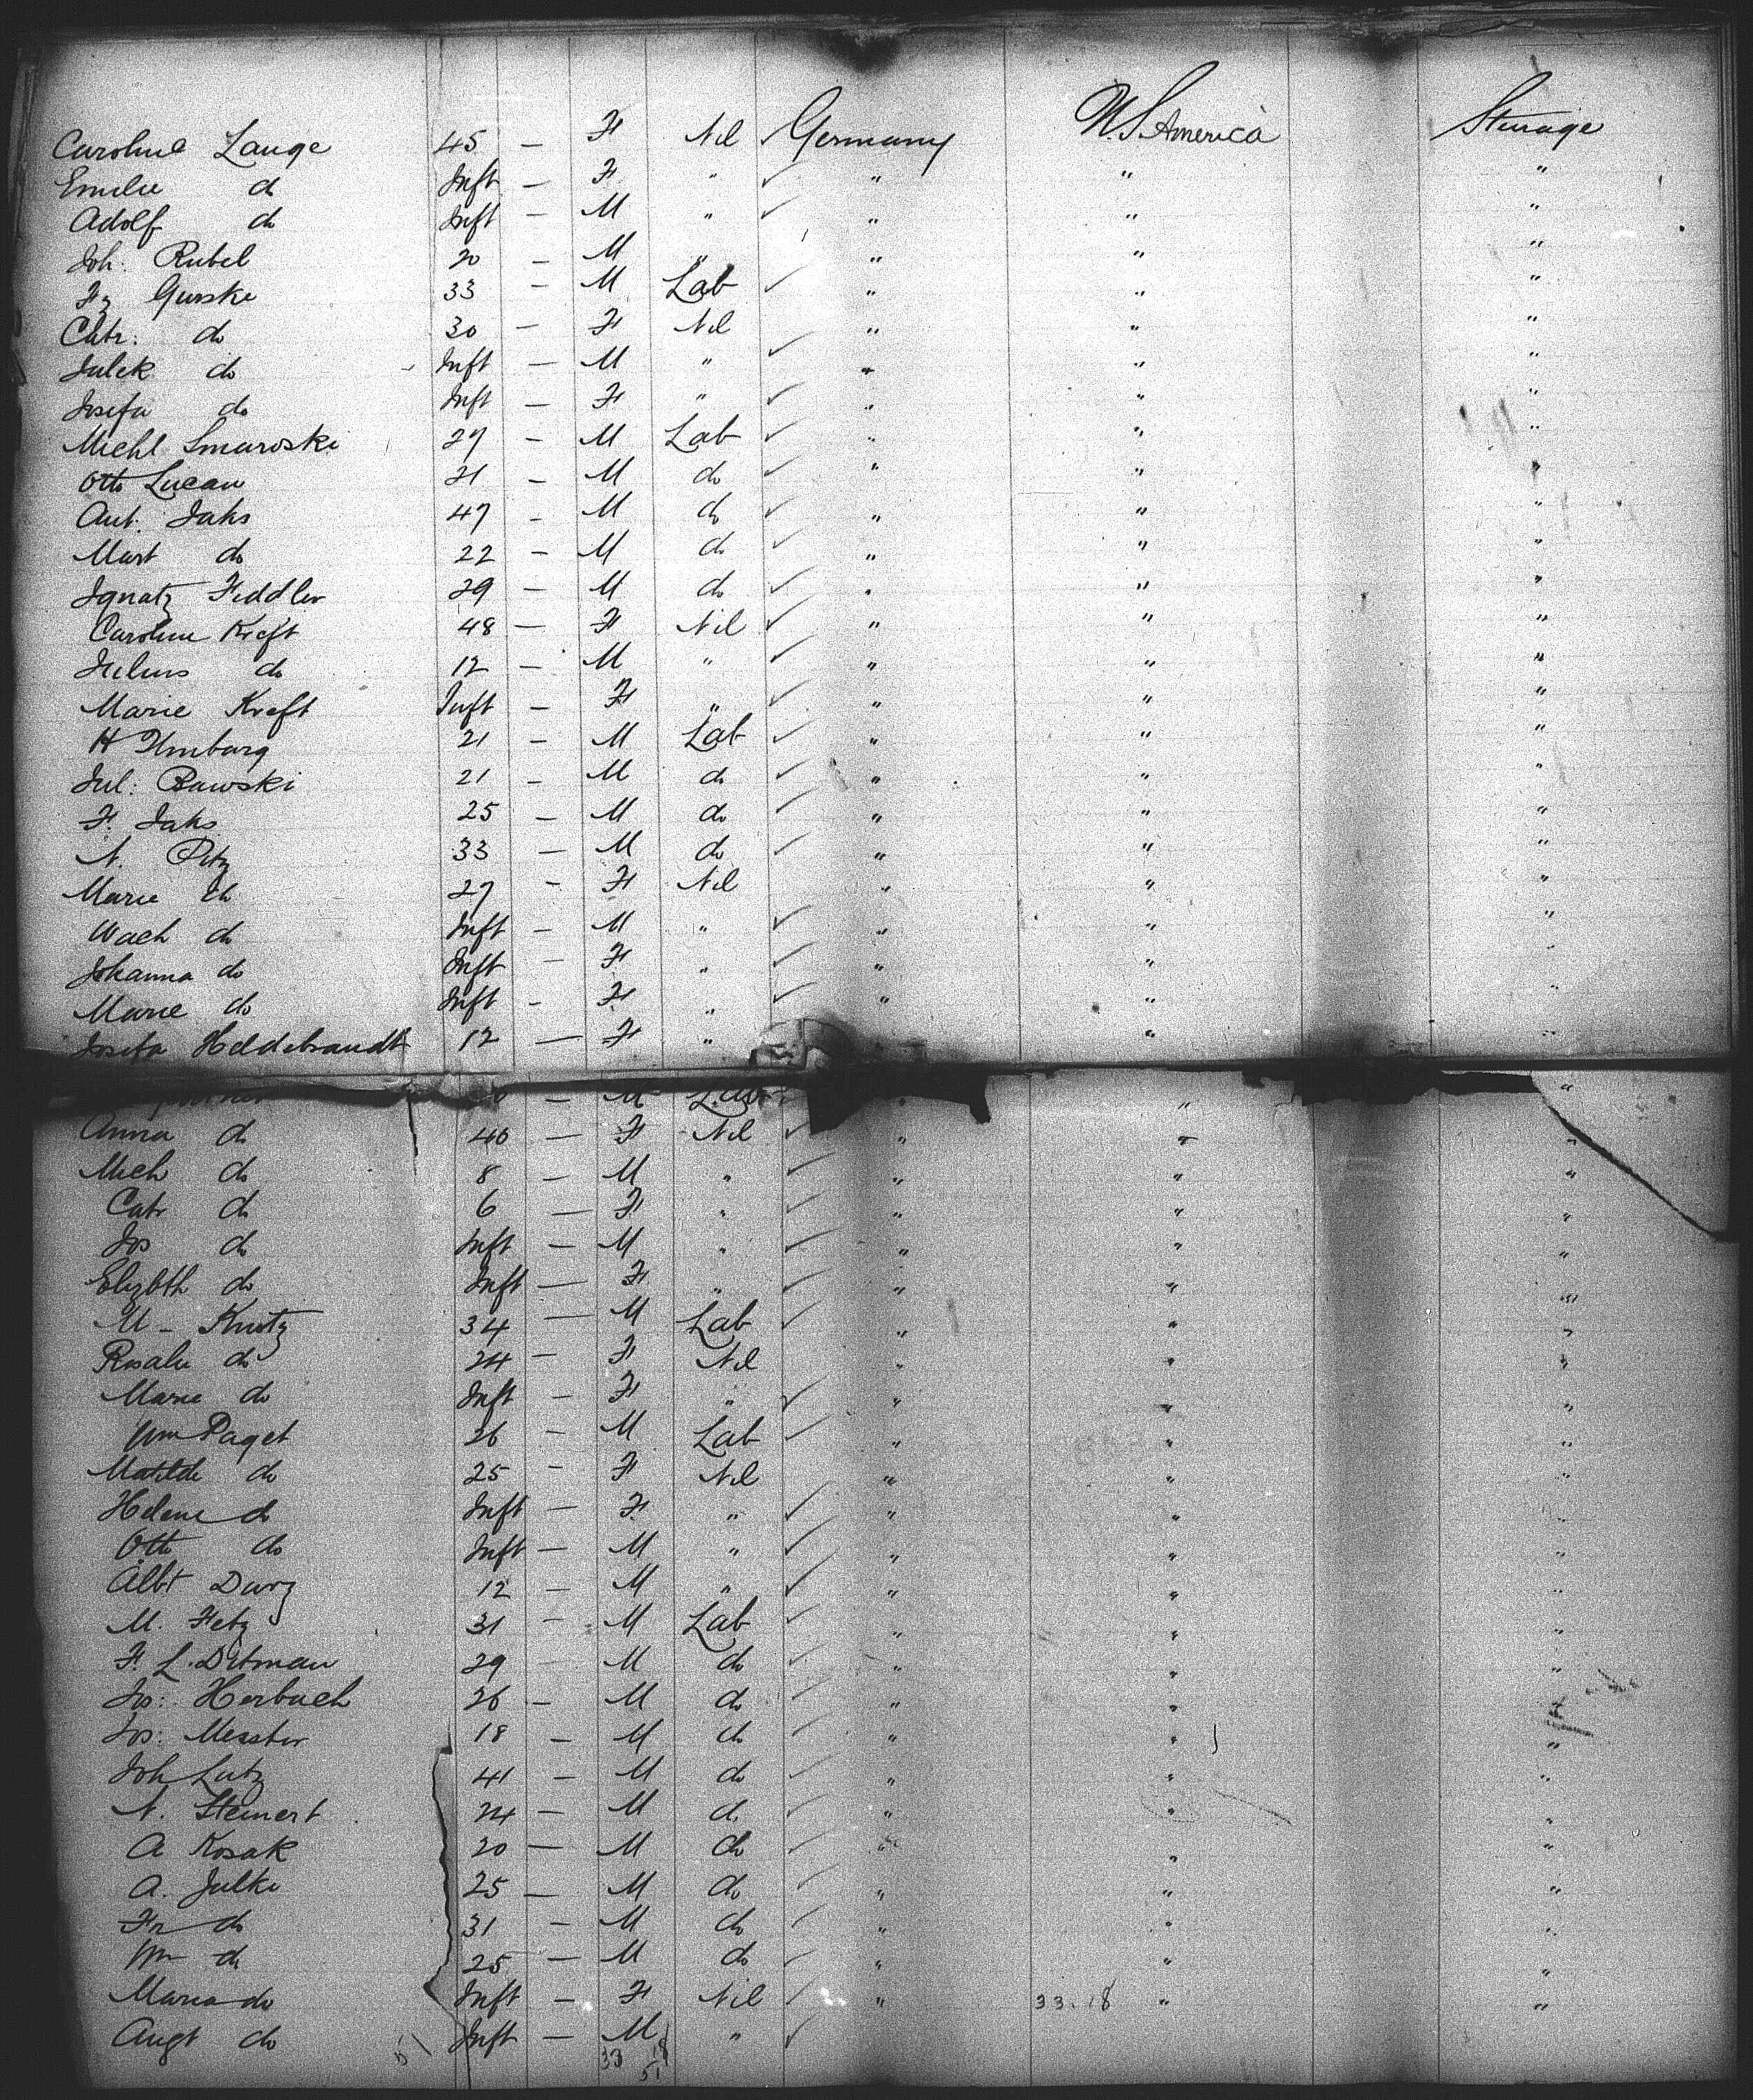 Caroline Lange 45 — F Nil Germany U.S. America Steerage
Emilie do Inft — F " ✓ " " "
Adolf do Inft — M " ✓ " " "
Joh: Rubel 20 — M " " " "
Fz Gurski 33 — M Lab ✓ " " "
Cath: do 30 — F Nil " " "
Julek do Inft — M " ✓ " " "
Josefa do Inft — F " ✓ " " "
Michl Smaroski 27 — M Lab ✓ " " "
Otto Lucau 21 — M do ✓ " " "
Ant. Jahs 47 — M do ✓ " " "
Mart do 22 — M do ✓ " " "
Ignatz Feddler 29 — M do ✓ " " "
Caroline Kreft 48 — F Nil ✓ " " "
Julius do 12 — M " ✓ " " "
Marie Kreft Inft — F " ✓ " " "
H Umburg 21 — M Lab ✓ " " "
Jul: Bawski 21 — M do ✓ " " "
F. Jahs 25 — M do ✓ " " "
N. Petz 33 — M do ✓ " " "
Marie do 27 — F Nil " " "
Wach do Inft — M " ✓ " " "
Johanna do Inft — F " ✓ " " "
Marie do Inft — F " ✓ " " "
Josefa Heldebrandt 12 — F " " "
— M Lab " " "
Anna do 40 — F Nil ✓ " " "
Mich do 8 — M " ✓ " " "
Catr do 6 — F " ✓ " " "
Jos do Inft — M " ✓ " " "
Elizbth do Inft — F " ✓ " " "
M — Knotz 34 — M Lab ✓ " " "
Rosalie do 24 — F Nil " " "
Marie do Inft — F " ✓ " " "
Wm Paget 26 — M Lab ✓ " " "
Matilde do 25 — F Nil " " "
Helene do Inft — F " ✓ " " "
Otto do Inft — M " ✓ " " "
Albt Durz 12 — M " ✓ " " "
M. Fetz 31 — M Lab ✓ " " "
F. L. Ditman 29 — M do ✓ " " "
Jos: Herbach 26 — M do ✓ " " "
Jos: Messter 18 — M do ✓ " " "
Joh Lutz 41 — M do ✓ " " "
N. Steinert 24 — M do ✓ " " "
A Kosak 20 — M do ✓ " " "
A. Julke 25 — M do ✓ " " "
Fr do 31 — M do ✓ " " "
Wm do 25 — M do ✓ " " "
Maria do Inft — F Nil ✓ " 33.18 " "
Augt do 51 Inft — M " ✓
33 18
51